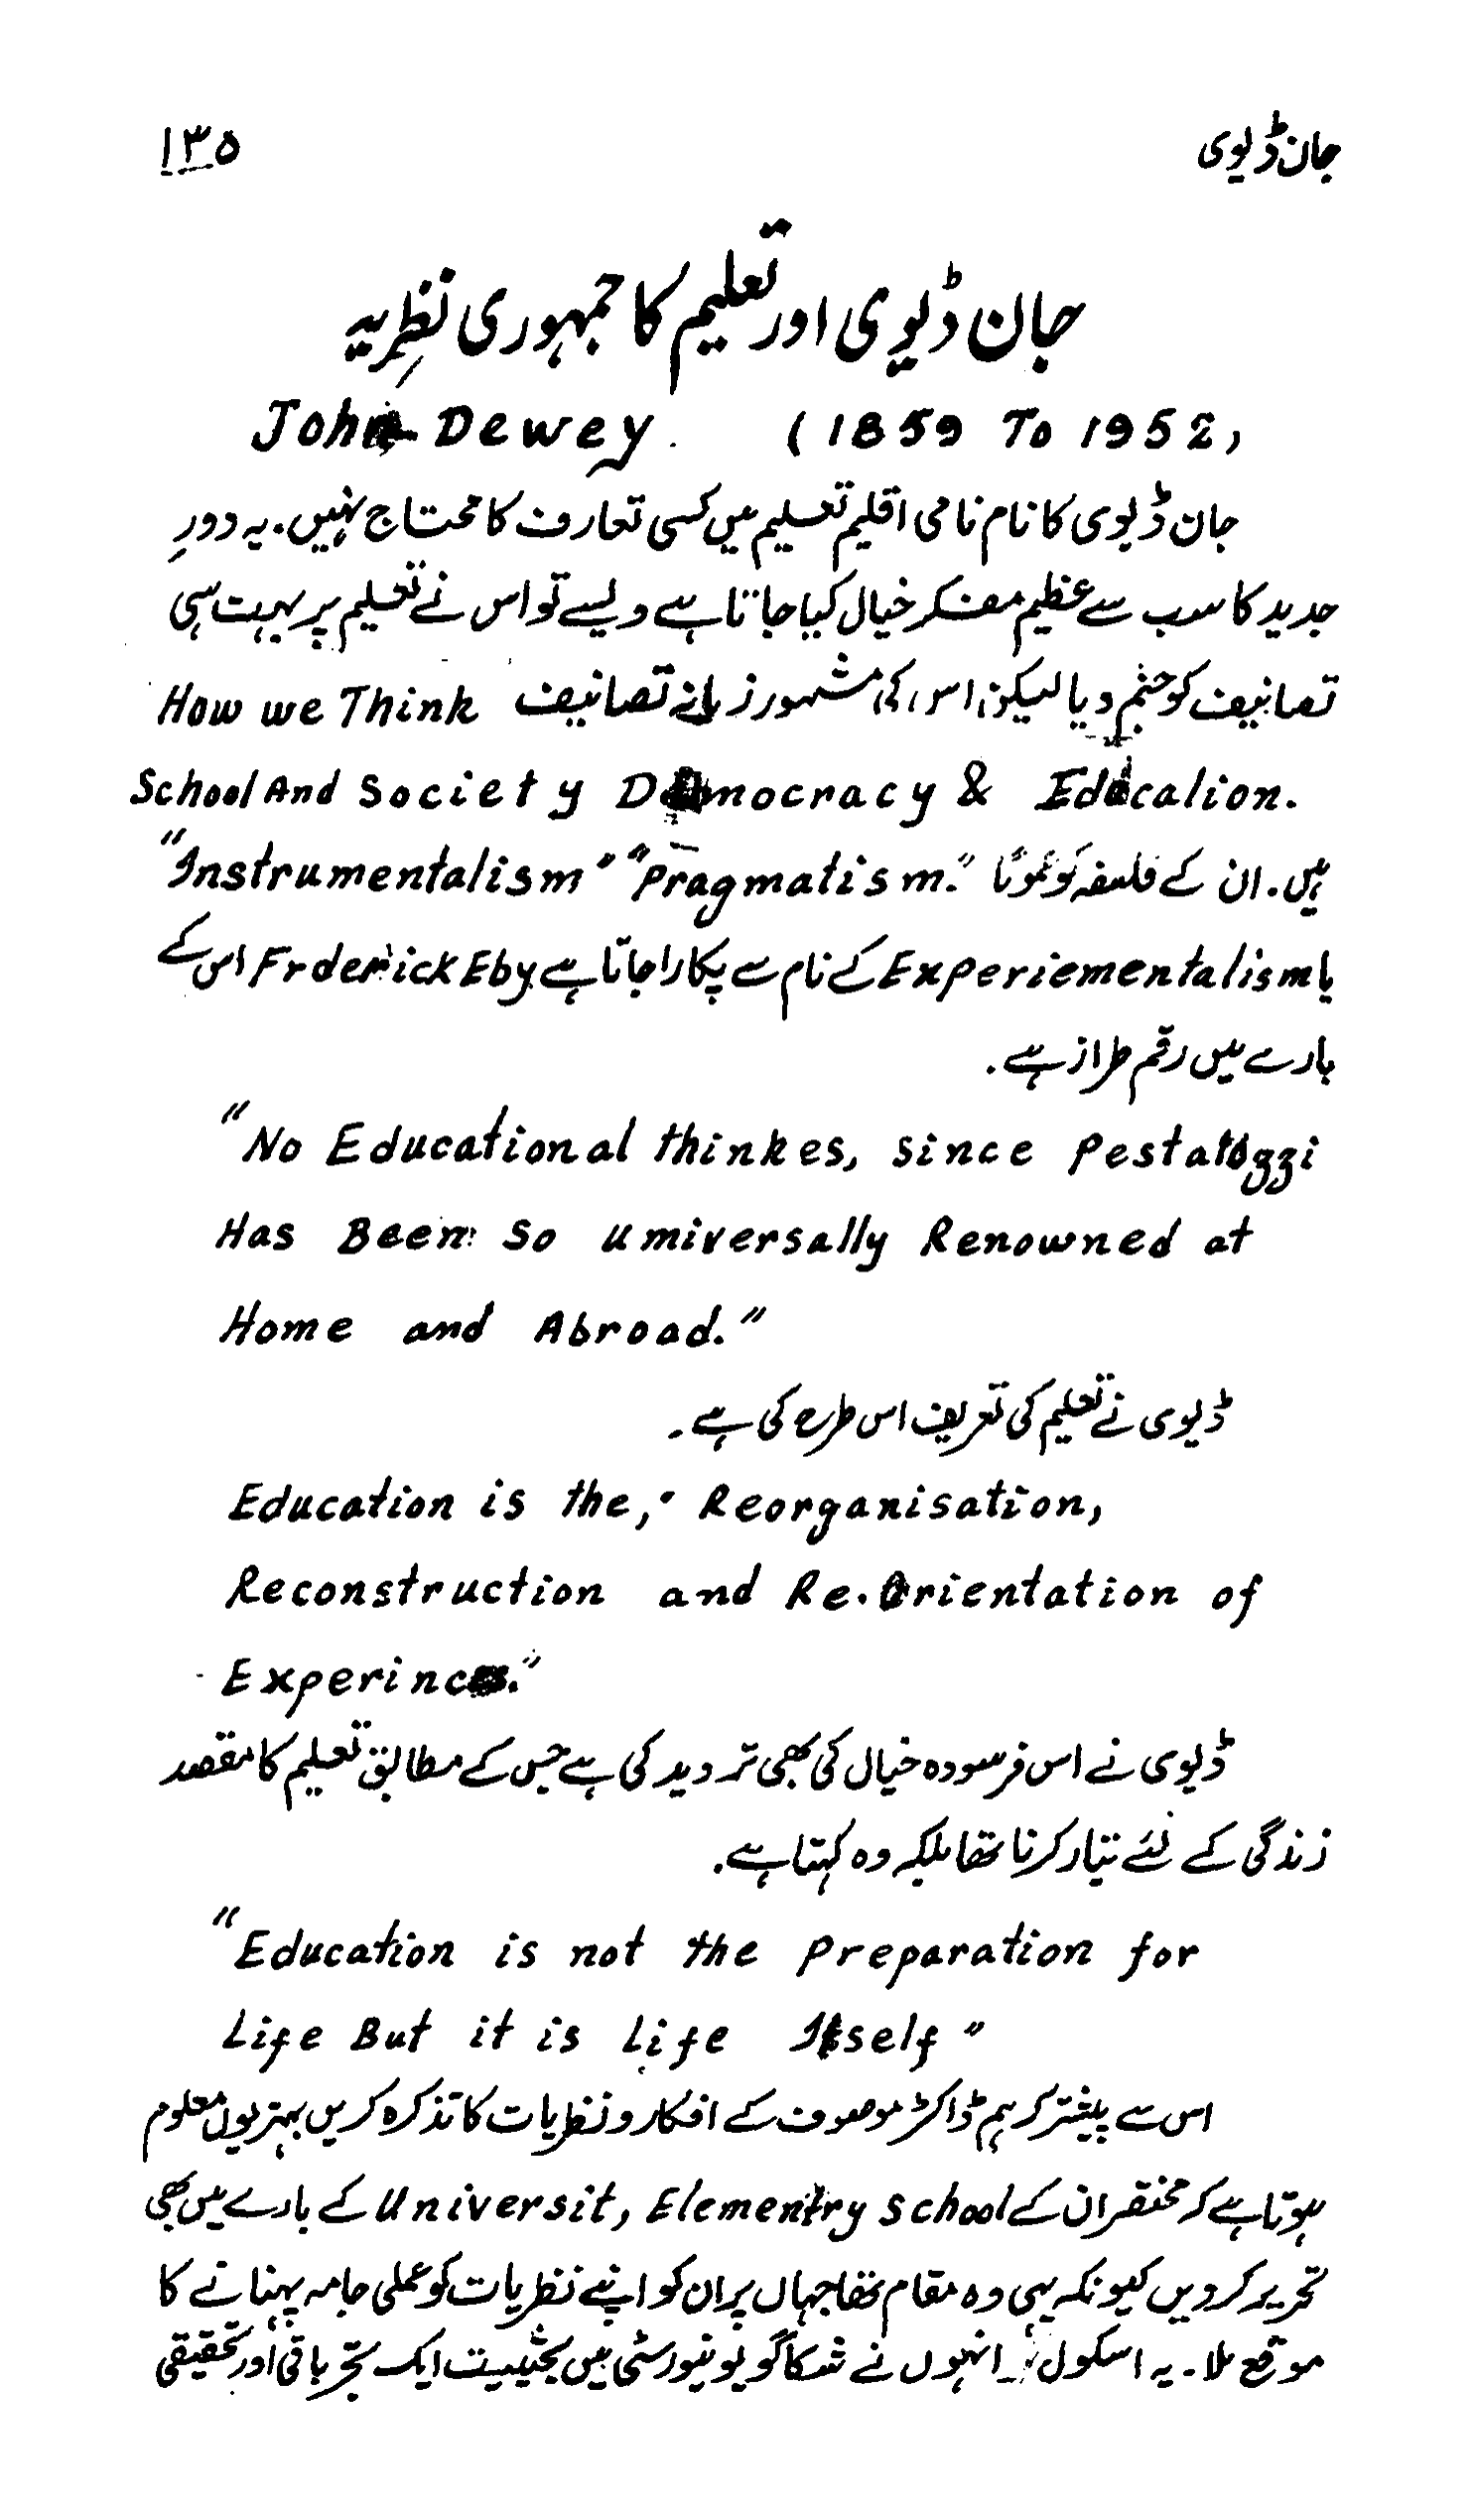 جان ڈیوی
۱۳۵
جان ڈیوی اور تعلیم کا جمہوری نظریہ
John Dewey. (1859 To 1952)
جان ڈیوی کا نام نامی اقلیم تعلیم میں کسی تعارف کا محتاج نہیں۔ یہ دورِ
جدید کا سب سے عظیم مفکر خیال کیا جاتا ہے ویسے تو اس نے تعلیم پر بہت سی
تصانیف کو جنم دیا لیکن اس کی مشہور زمانے تصانیف How we Think
School And Society Democracy & Education.
ہیں۔ ان کے فلسفہ کو عموماً "Instrumentalism" "Pragmatism."
یا Experiementalism کے نام سے پکارا جاتا ہے Frderick Eby اس کے
بارے میں رقم طراز ہے۔
"No Educational thinkes, since Pestalozzi
Has Been So umiversally Renowned at
Home and Abroad."
ڈیوی نے تعلیم کی تعریف اس طرح کی ہے۔
Education is the," Reorganisation,
Reconstruction and Re.Orientation of
Experinces."
ڈیوی نے اس فرسودہ خیال کی بھی تردید کی ہے جس کے مطابق تعلیم کا مقصد
زندگی کے لئے تیار کرنا تھا بلکہ وہ کہتا ہے۔
"Education is not the Preparation for
Life But it is Life Itself"
اس سے پیشتر کہ ہم ڈاکٹر موصوف کے افکار و نظریات کا تذکرہ کریں بہتر یوں معلوم
ہوتا ہے کہ مختصر ان کے Universit, Elementry School کے بارے میں بھی
تحریر کر دیں کیونکہ یہی وہ مقام تھا جہاں پر ان کو اپنے نظریات کو عملی جامہ پہنانے کا
موقع ملا۔ یہ اسکول انہوں نے شکاگو یونیورسٹی میں بحیثیت ایک تجرباتی اور تحقیقی